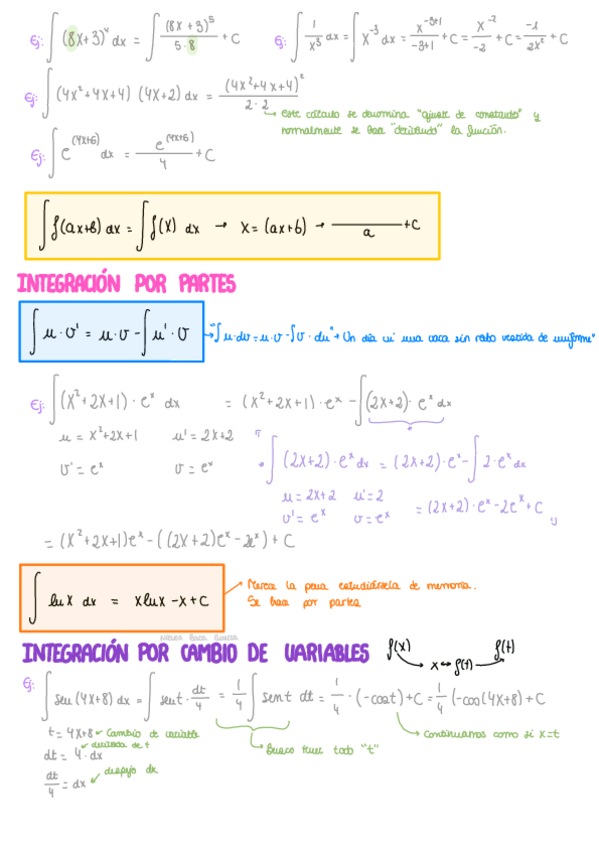 Ej: ∫(8x+3)⁴ dx = ∫ (8x+3)⁵ / 5·8 + C
Ej: ∫ 1/x³ dx = ∫ x⁻³ dx = x⁻³⁺¹/-3+1 + C = x⁻²/-2 + C = -1/2x² + C
Ej: ∫(4x²+4x+4) (4x+2) dx = (4x²+4x+4)² / 2·2
→ este cálculo se denomina "ajuste de constante" y
normalmente se hace "derivando" la función.
Ej: ∫ e^(4x+6) dx = e^(4x+6) / 4 + C
∫ f(ax+b) dx = ∫ f(x) dx → x = (ax+b) → ―――/a + C
INTEGRACIÓN POR PARTES
∫ u·v' = u·v - ∫ u'·v → "∫ u·dv = u·v - ∫ v·du" → Un día vi una vaca sin rabo vestida de uniforme"
Ej: ∫(x²+2x+1)·eˣ dx = (x²+2x+1)·eˣ - ∫(2x+2)·eˣ dx
u = x²+2x+1 u' = 2x+2
v' = eˣ v = eˣ
∫ (2x+2)·eˣ dx = (2x+2)·eˣ - ∫ 2·eˣ dx
u = 2x+2 u' = 2
v' = eˣ v = eˣ
= (2x+2)·eˣ - 2eˣ + C
= (x²+2x+1)eˣ - ((2x+2)eˣ - 2eˣ) + C
∫ lnx dx = xlnx - x + C
→ Merece la pena estudiársela de memoria.
Se hace por partes
INTEGRACIÓN POR CAMBIO DE VARIABLES f(x) x↔f(t) f(t)
Ej: ∫ sen(4x+8) dx = ∫ sent · dt/4 = 1/4 ∫ sent dt = 1/4 · (-cost) + C = 1/4 (-cos(4x+8) + C
t = 4x+8 Cambio de variable
derivada de t
dt = 4·dx
dt/4 = dx despejo dx
Busco tener todo "t"
Continuamos como si x=t